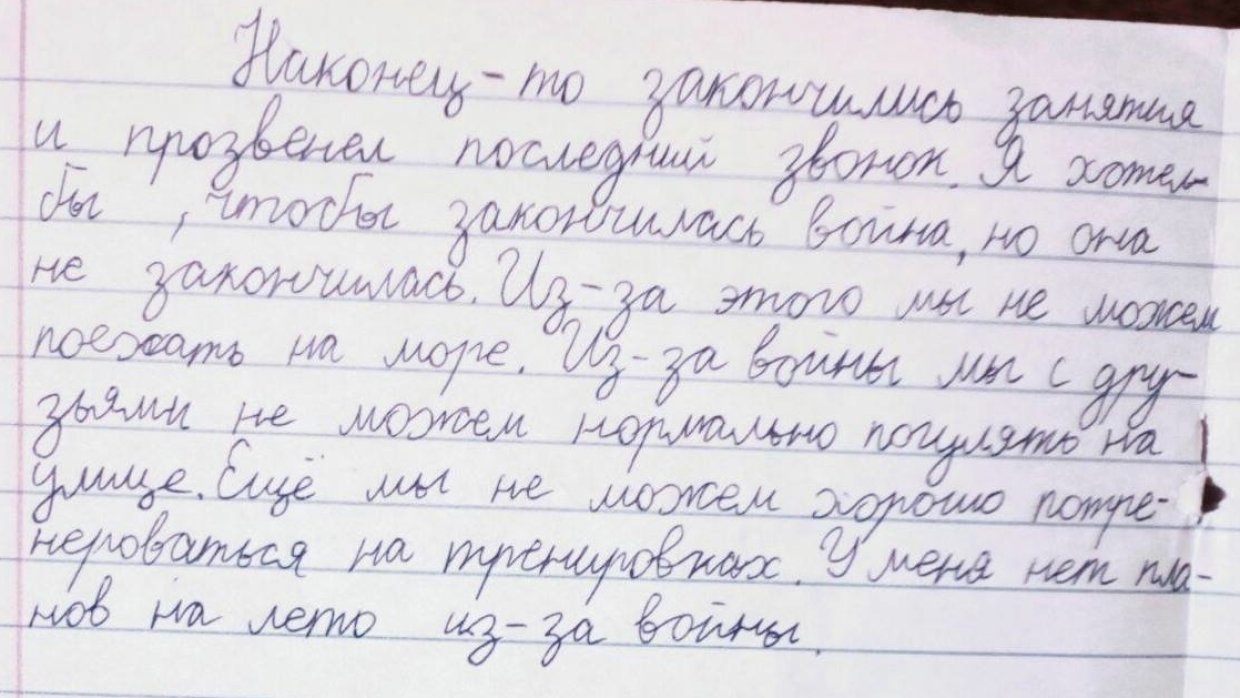 Наконец-то закончились занятия
и прозвенел последний звонок. Я хотел
бы , чтобы закончилась война, но она
не закончилась. Из-за этого мы не можем
поехать на море. Из-за войны мы с дру-
зьями не можем нормально погулять на
улице. Ещё мы не можем хорошо потре-
нероваться на тренировках. У меня нет пла-
нов на лето из-за войны.